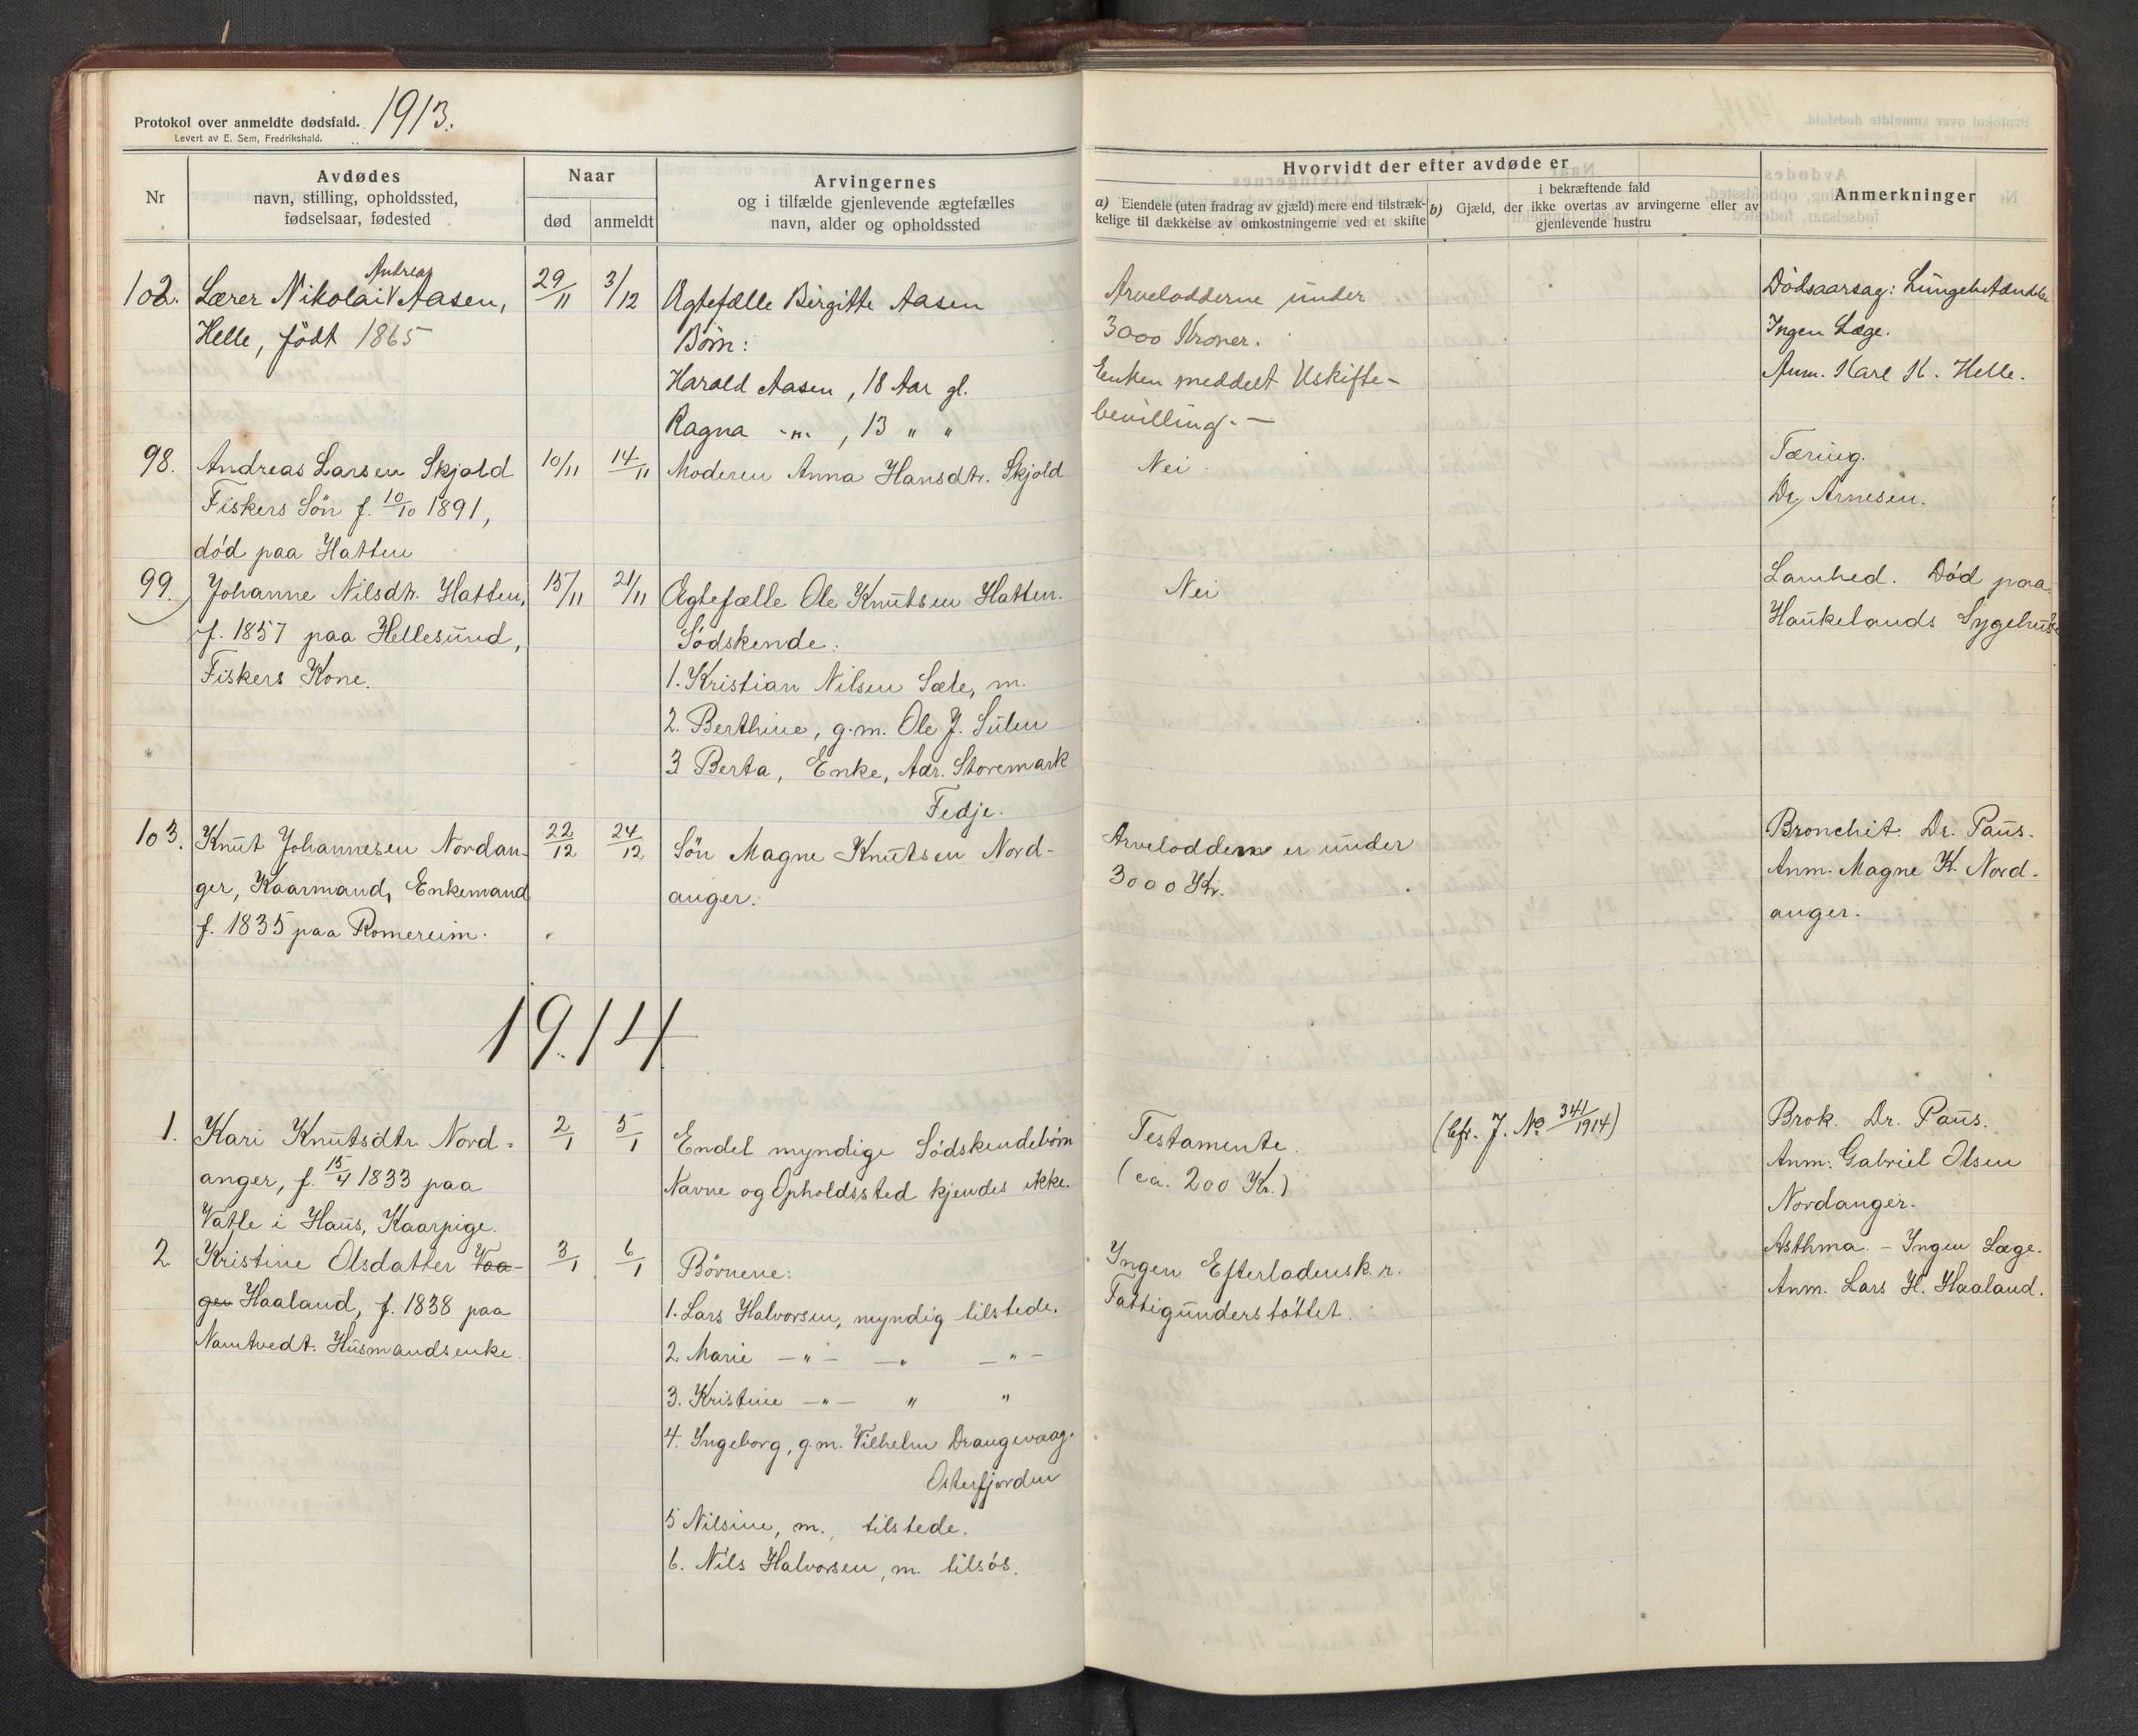 Protokol over anmeldte dødsfald. 1913.
Levert av E. Sem, Fredrikshald.
Nr
Avdødes
navn, stilling, opholdssted,
fødselsaar, fødested
Naar
død
anmeldt
Arvingernes
og i tilfælde gjenlevende ægtefælles
navn, alder og opholdssted
Hvorvidt der efter avdøde er
a) Eiendele (uten fradrag av gjæld) mere end tilstræk-
kelige til dækkelse av omkostningerne ved et skifte
i bekræftende fald
b) Gjæld, der ikke overtas av arvingerne eller av
gjenlevende hustru
Anmerkninger
102.
Andreas
Lærer Nikolai Aasen,
Helle, født 1865
29/11
3/12
Ægtefælle Birgitte Aasen
Børn:
Harald Aasen, 18 Aar gl.
Ragna -"-, 13 " "
Arvelodderne under
3000 Kroner.
Enken meddelt Uskifte-
bevilling. —
Dødsaarsag: Lungebetændelse
Ingen Læge.
Anm. Karl K. Helle.
98.
Andreas Larsen Skjold
Fiskers Søn f. 10/10 1891,
død paa Hatten
10/11
14/11
Moderen Anna Hansdtr. Skjold
Nei
Tæring.
Dr. Arnesen.
99.
Johanne Nilsdtr. Hatten,
f. 1857 paa Hellesund,
Fiskers Kone.
15/11
21/11
Ægtefælle Ole Knutsen Hatten.
Sødskende:
1. Kristian Nilsen Sæle, m.
2. Berthine, g.m. Ole J. Sulen
3 Berta, Enke, Adr. Storemark
Fedje.
Nei
Lamhed. Død paa
Haukelands Sygehus
103.
Knut Johannesen Nordan-
ger, Kaarmand, Enkemand
f. 1835 paa Romereim.
22/12
24/12
Søn Magne Knutsen Nord-
anger.
Arveloddern er under
3000 Kr.
Bronchit. Dr. Paus.
Anm. Magne K. Nord-
anger.
1914
1.
Kari Knutsdtr. Nord-
anger, f. 15/4 1833 paa
Vatle i Haus, Kaarpige.
2/1
5/1
Endel myndige Sødskendebørn
Navne og Opholdssted kjendes ikke.
Testamente.
(ca. 200 Kr.)
(cfr. J. No 341/1914)
Brok. Dr. Paus.
Anm. Gabriel Olsen
Nordanger.
2
Kristine Olsdatter Vaa-
gen Haaland, f. 1838 paa
Namtvedt. Husmandsenke.
3/1
6/1
Børnene:
1. Lars Halvorsen, myndig tilstede.
2. Marie —"— —" —"—
3. Kristine —"— " "
4. Ingeborg, g.m. Vilhelm Drangevaag.
Osterfjorden
5 Nilsine, m., tilstede.
6. Nils Halvorsen, m. tilsøs.
Ingen Efterladensk. r.
Fattigunderstøttet.
Asthma. - Ingen Læge.
Anm. Lars H. Haaland.